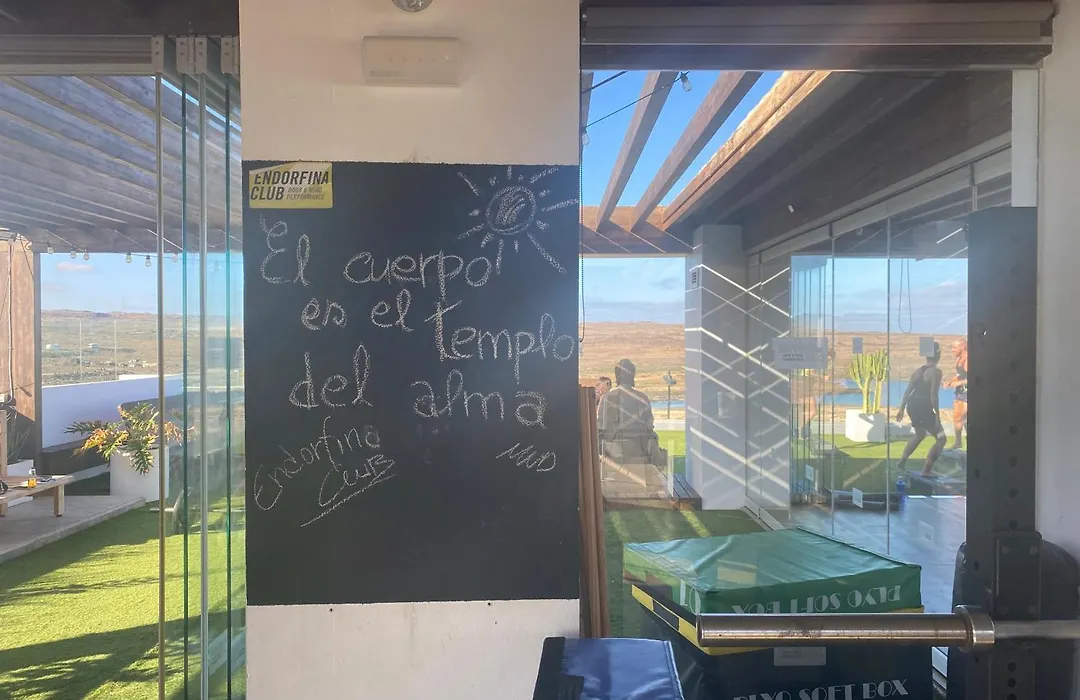 ENDORFINA
CLUB BODY & MIND
PERFORMANCE
El cuerpo
es el templo
del alma
Endorfina
CLUB
PLYO SOFT BOX
PLYO SOFT BOX